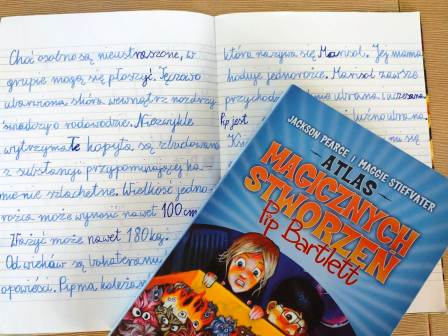 Choć osobno są nieustraszone, w
grupie mogą się płoszyć. Tęczowo
ubarwiona skóra wewnątrz nozdrzy
świadczy o rodowodzie. Niezwykle
wytrzymałe kopyta są zbudowane
z substancji przypominającej ka-
mienie szlachetne. Wielkość jedno-
rożca może wynosić nawet 100 cm
Ważyć może nawet 180 kg.
Od wieków są bohaterami
opowieści. Pip ma koleżan
która nazywa się Marisol. Jej mama
hoduje jednorożce. Marisol zawsze
przychodzi ubrana
Pip jest
JACKSON PEARCE / MAGGIE STIEFVATER
ATLAS
MAGICZNYCH
STWORZEŃ
Pip Bartlett